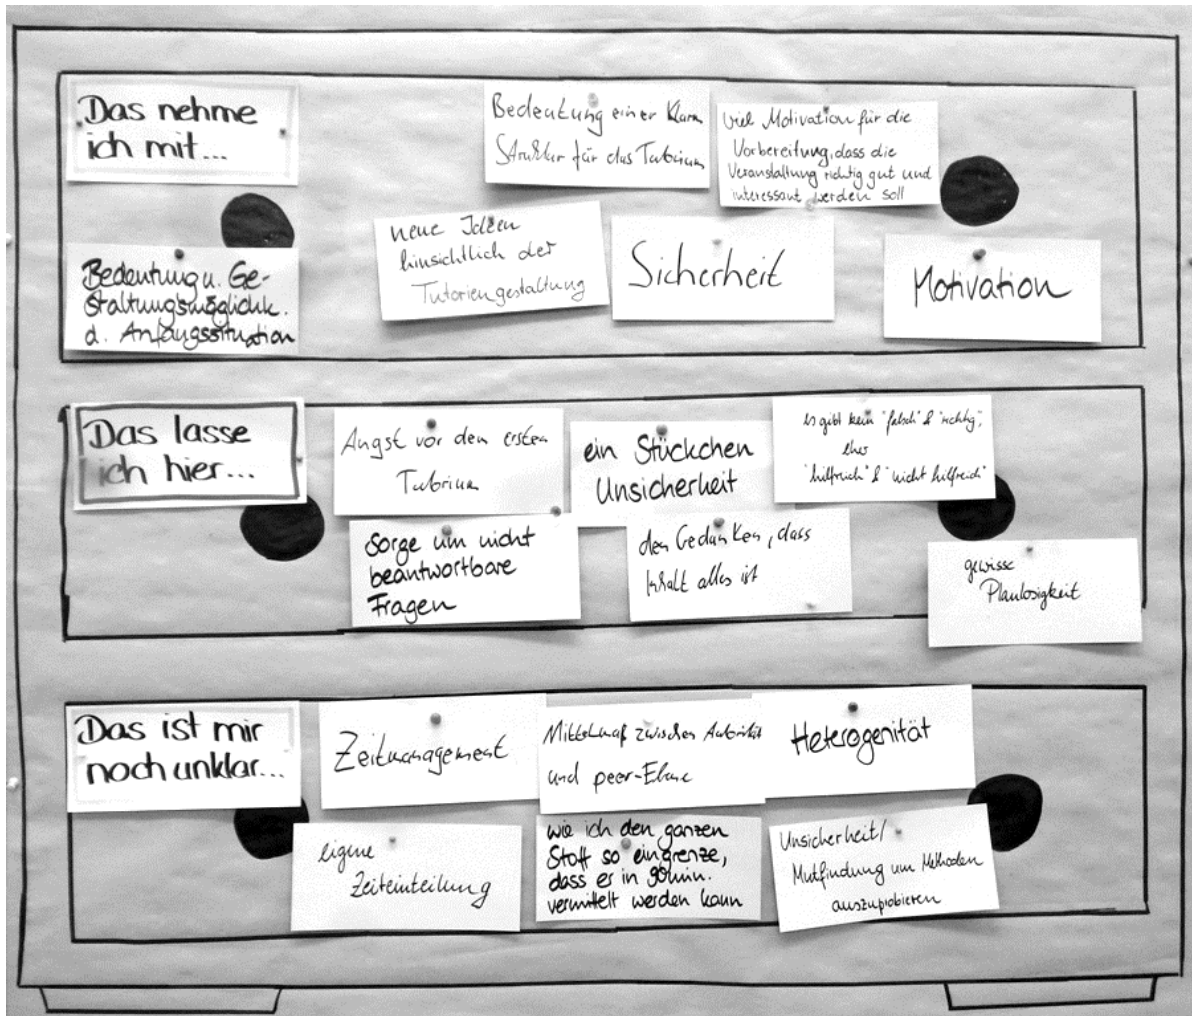 Das nehme
ich mit...
Bedeutung einer klaren
Struktur für das Tutorium
viel Motivation für die
Vorbereitung, dass die
Veranstaltung richtig gut und
interessant werden soll
Bedeutung u. Ge-
staltungsmöglichk.
d. Anfangssituation
neue Ideen
hinsichtlich der
Tutoriengestaltung
Sicherheit
Motivation
Das lasse
ich hier...
Angst vor dem ersten
Tutorium
ein Stückchen
Unsicherheit
es gibt kein "falsch" & "richtig",
eher
"hilfreich" & "nicht hilfreich"
Sorge um nicht
beantwortbare
Fragen
den Gedanken, dass
Inhalt alles ist
gewisse
Planlosigkeit
Das ist mir
noch unklar...
Zeitmanagement
Mittelmaß zwischen Autorität
und peer-Ebene
Heterogenität
eigene
Zeiteinteilung
wie ich den ganzen
Stoff so eingrenze,
dass er in 90min.
vermittelt werden kann
Unsicherheit/
Mutfindung um Methoden
auszuprobieren